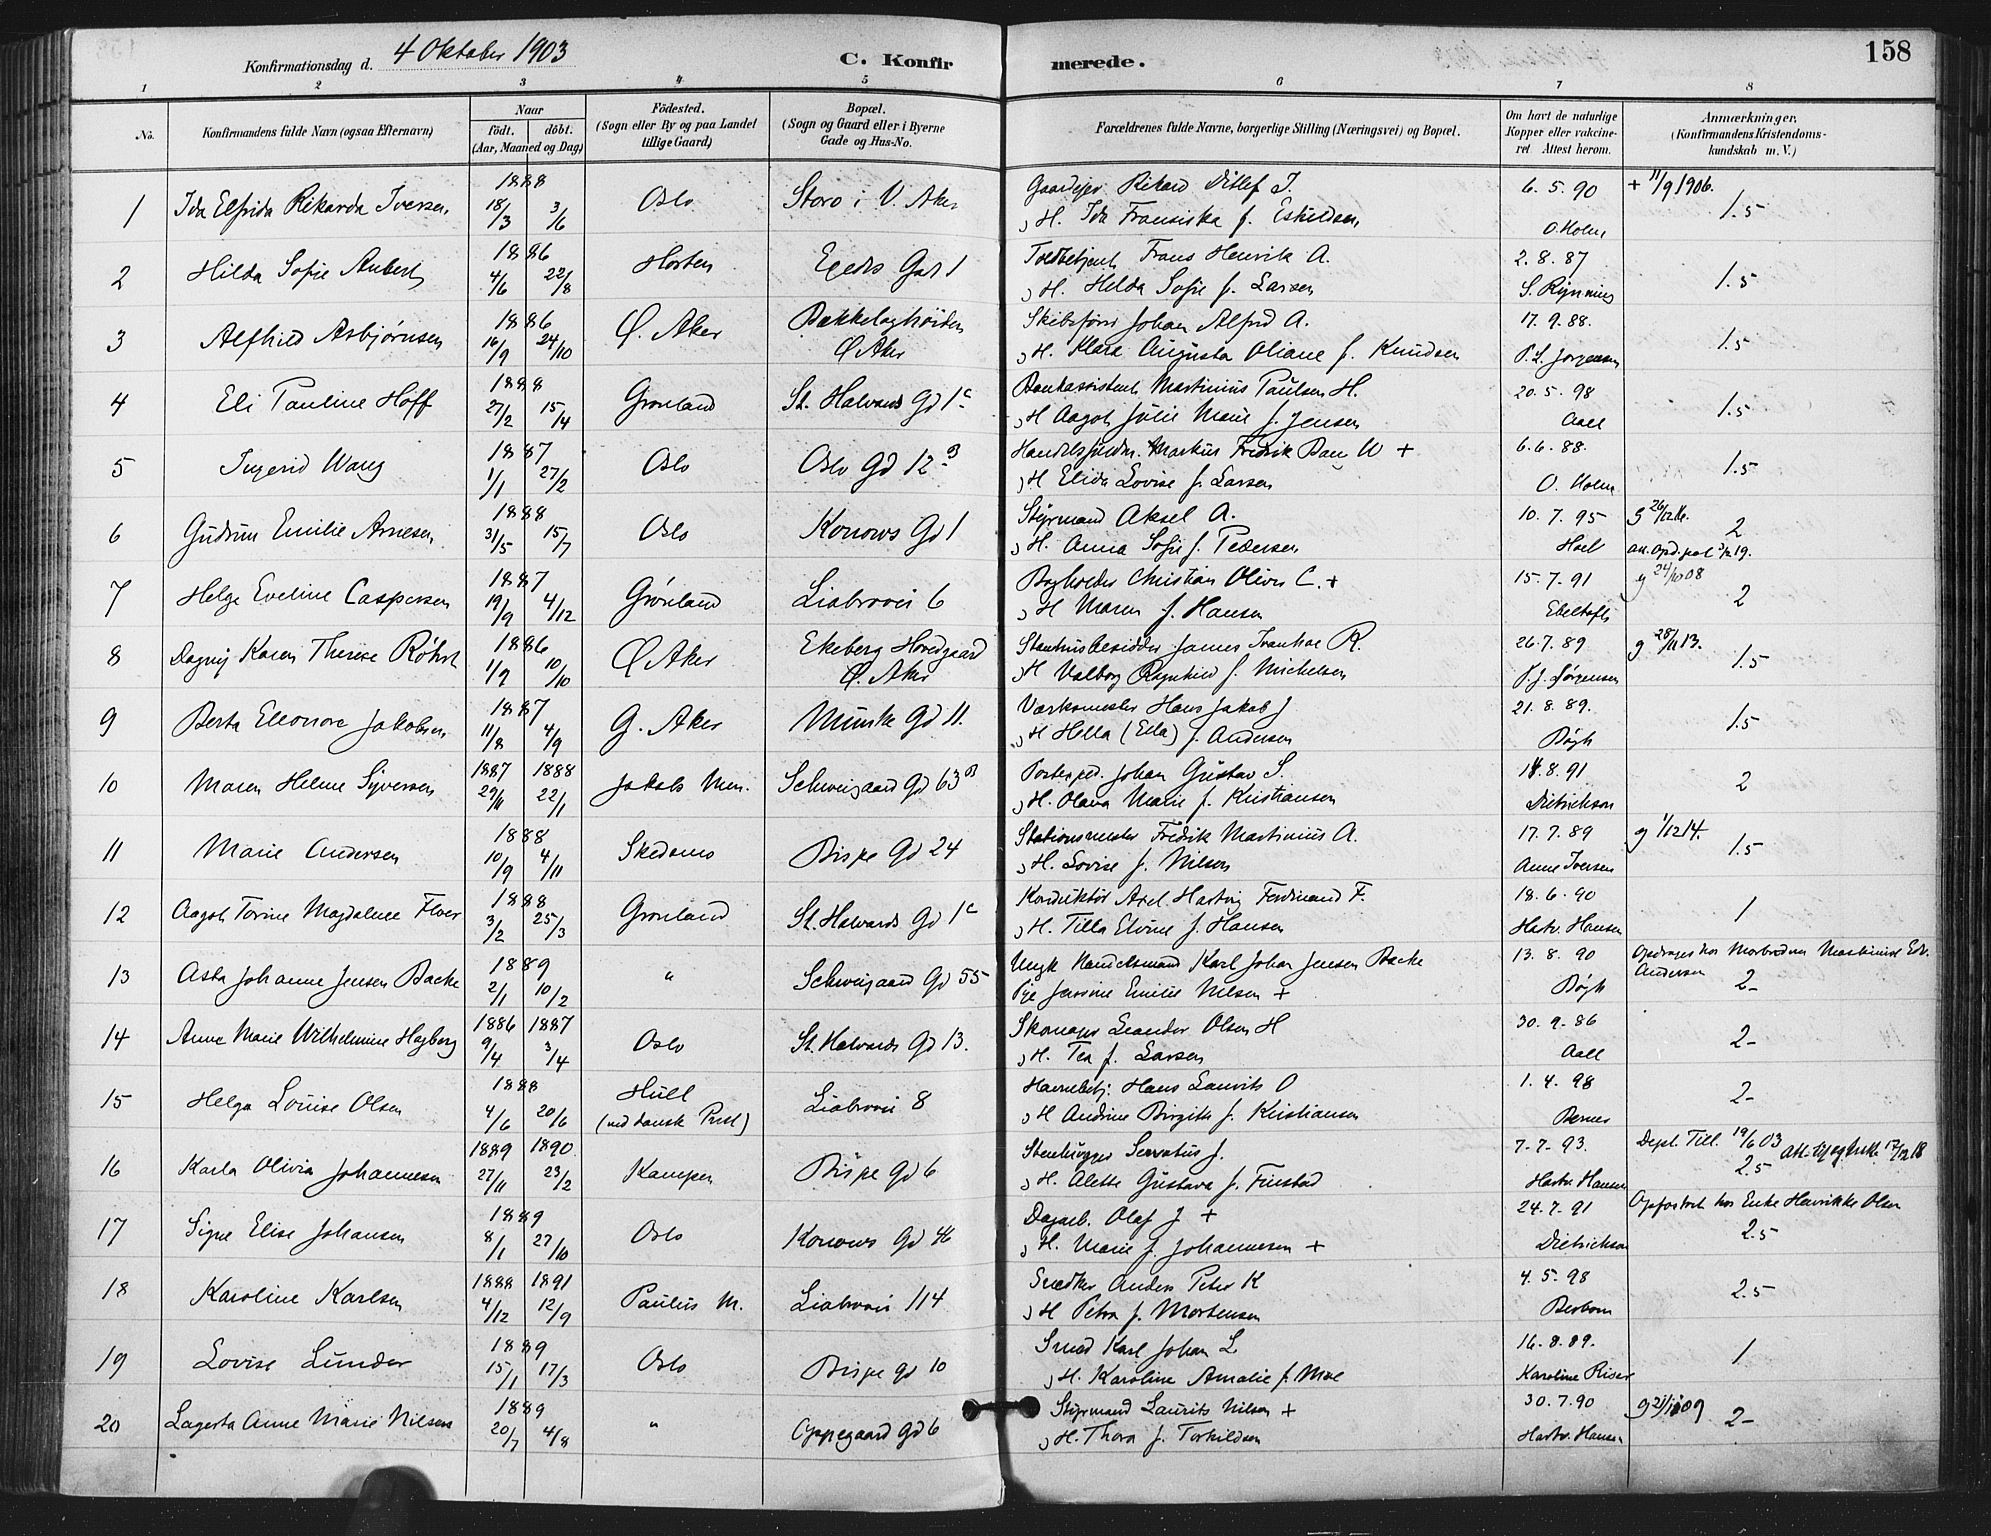 Konfirmationsdag d. 4 Oktober 1903 C. Konfirmerede. 158
1 2 3 4 5 6 7 8
No. Konfirmandens fulde Navn (ogsaa Efternavn) Naar födt. döbt. (Aar, Maaned og Dag) Födested. (Sogn eller By og paa Landet tillige Gaard) Bopæl. (Sogn og Gaard eller i Byerne Gade og Hus-No. Forældrenes fulde Navne, borgerlige Stilling (Næringsvei) og Bopæl. Om havt de naturlige Kopper eller vakcineret Attest herom. Anmærkninger. (Konfirmandens Kristendomskundskab m. V.)
1 Ida Elfrida Rikarda Iversen 1888 18/3 3/6 Oslo Storo i V. Aker Gaardejer Rikard Ditlef I. 6. 5. 90 + 11/9 1906. 1.5
H. Ida Fransiska f. Eskildsen O. Holm
2 Hilda Sofie Aubert 1886 4/6 22/8 Horten Egedes Gad 1 Toldbetjent Frans Henrik A. 2. 8. 87 1.5
H. Hilda Sofie f. Larsen S. Rynning
3 Alfhild Asbjørnsen 1886 16/9 24/10 Ø. Aker Bækkelagshöiden Ø Aker Skibsförer Johan Alfred A. 17. 9. 88. 1.5
H. Klara Augusta Oliane f. Knudsen P. L. Jørgensen
4 Eli Pauline Hoff 1888 27/2 15/4 Grønland St. Halvards Gd 1c Bankassistent Martinius Paulsen H. 20. 5. 98 1.5
H Aagot Julie Marie f. Jensen Aall
5 Ingerid Wang 1887 1/1 27/2 Oslo Oslo Gd 12 B Markus Fredrik W + 6. 6. 88. 1.5
H Elida Lovise f. Larsen O. Holm
6 Gudrun Emilie Arnesen 1888 31/5 15/7 Oslo Konows Gd 1 Styrmand Aksel A. 10. 7. 95 2
H. Anna Sofie f. Pedersen Hoel
7 Helga Eveline Caspersen 1887 19/9 4/12 Grønland Liabroveien 6 Bogholder Christian Oliver C. + 15. 7. 91 g 24/10 08 2
H Maren f. Hansen Ebeltoft
8 Dagny Karen Therese Röhrt 1886 1/9 10/10 Ø Aker Ekeberg Hovedgaard Ø. Aker James Ivanhoe R. 26. 7. 89 g 28/11 13. 1.5
H Valborg Ragnhild f. Michelsen P. J. Jørgensen
9 Berta Eleonora Jakobsen 1887 11/8 4/9 G. Aker Munke Gd 11. Værksmester Hans Jakob J 21. 8. 89. 1.5
H Hella (Ella) f. Andersen Bögh
10 Maren Helene Syversen 1887 29/11 1888 22/1 Jakobs Men. Schweigaard Gd 63 B Johan Gustav S. 14. 8. 91 2
H. Olava Marie f. Kristiansen Dietrichson
11 Marie Andersen 1888 10/9 4/11 Skedsmo Bispe Gd 24 Stationsmester Fredrik Martinius A. 17. 7. 89 g 1/12 14. 1.5
H. Lovise f. Nilsen Anne Iversen
12 Aagot Torine Magdalene Floer 1888 3/2 25/3 Grønland St. Halvards Gd 1c Konduktör Axel Hartvig Ferdinand F. 18. 6. 90 1
H. Tilla Elvine f. Hansen Hartv. Hansen
13 Asta Johanne Jensen Backe 1889 2/1 10/2 " Schweigaard Gd 55 Ungk Handelsmand Karl Johan Jensen Backe 13. 8. 90 Opdrages hos Morbroderen Martinius Edv. Andersen 2-
Pige Jensine Emilie Nilsen + Bögh
14 Anna Marie Wilhelmine Hagberg 1886 9/4 1887 3/4 Oslo St. Halvards Gd 13. Skomager Leander Olsen H 30. 9. 86 2-
H. Tea f. Larsen Aall
15 Helga Louise Olsen 1888 4/6 20/6 Hull (ved dansk Prest) Liabroveien 8 Havnebetj. Hans Laurits O 1. 4. 98 2-
H Andrine Birgitte f. Kristiansen Berner
16 Karla Olivia Johannesen 1889 27/11 1890 23/2 Kampen Bispe Gd 6 Stenhugger Servatius J. 7. 7. 93. Dept. Till. 19/6 03 2.5
H. Alette Gustava f. Finstad Hartv. Hansen
17 Signe Elise Johansen 1889 8/1 27/10 Oslo Konows Gd 46 Dagarb. Olaf J + 24. 7. 91 Opfostret hos Enke Henrikke Olsen 2.5
H. Marie f. Johannesen + Dietrichson
18 Karoline Karlsen 1888 4/12 1891 12/9 Paulus M. Liabroveien 114 Snedker Anders Peter K 4. 5. 98 2.5
H Petra f. Mortensen Berbom
19 Lovise Lunder 1889 15/1 17/3 Oslo Bispe Gd 10 Smed Karl Johan L 16. 8. 89. 1
H. Karoline Amalie f. Moe Karoline Riser
20 Lagerta Anne Marie Nilsen 1889 20/7 4/8 " Oppegaard Gd 6 Styrmand Laurits Nilsen + 30. 7. 90 2-
H. Thora f. Torkildsen Hartv. Hansen